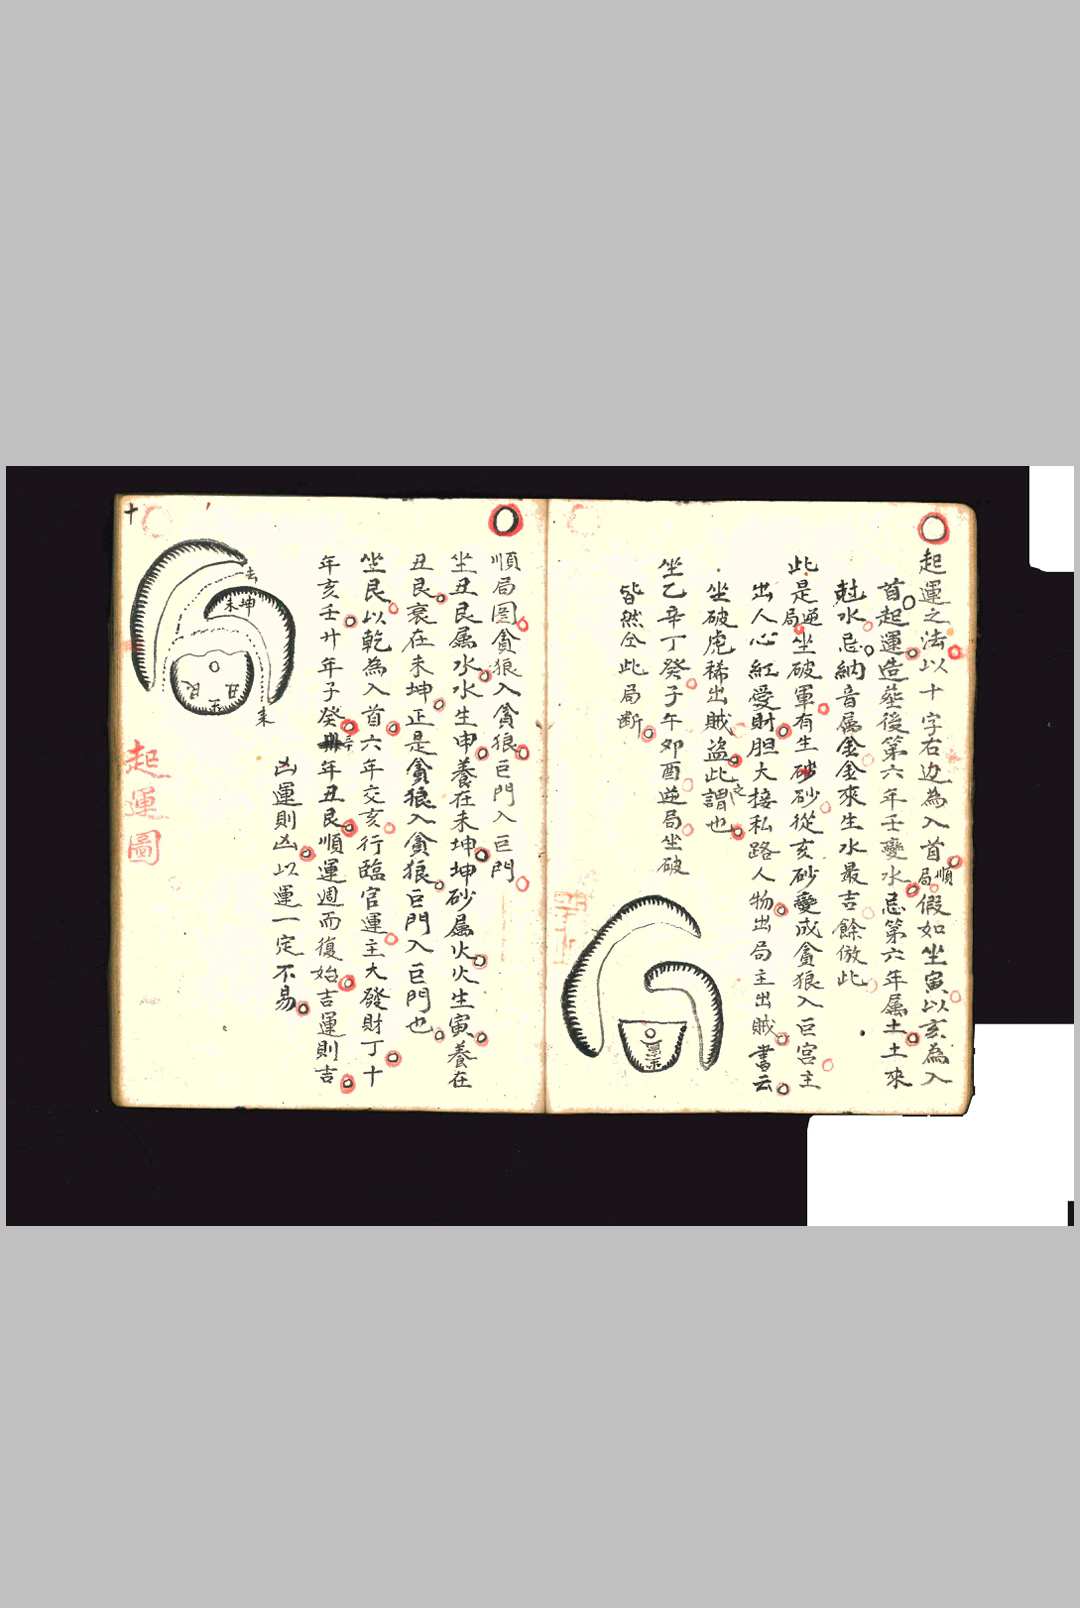 起運之法以十字右边為入首順局假如坐寅以亥為入
首起運造塟後第六年壬變水忌第六年属土土來
尅水忌納音属金金來生水最吉餘倣此
此是逆局坐破軍有生砂從亥砂變成貪狼入巨宮主
出人心紅愛財胆大接私路人物出局主出賊書云
坐破虎稀出賊盗此之謂也
坐乙辛丁癸子午夘酉逆局坐破
皆然仝此局斷
順局圖貪狼入貪狼巨門入巨門
坐丑艮属水水生申養在未坤坤砂属火火生寅養在
丑艮衰在未坤正是貪狼入貪狼巨門入巨門也
坐艮以乾為入首六年交亥行臨官運主大發財丁十
年亥壬廿年子癸年丑艮順運週而復始吉運則吉
凶運則凶以運一定不易
十
去
未坤
丑
艮
來
起運圖